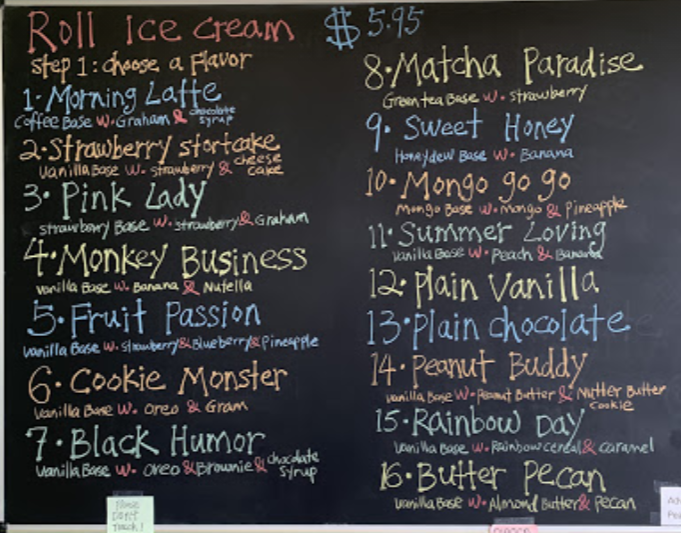 Roll Ice cream $5.95
step 1: choose a Flavor
1. Morning Latte
Coffee Base W. Graham & chocolate syrup
2. Strawberry stortcake
Vanilla Base W. strawberry & cheese cake
3. Pink Lady
strawberry Base W. strawberry & Graham
4. Monkey Business
Vanilla Base W. Banana & Nutella
5. Fruit Passion
Vanilla Base W. Strawberry & Blueberry & Pineapple
6. Cookie Monster
Vanilla Base W. Oreo & Gram
7. Black Humor
Vanilla Base W. Oreo & Brownie & chocolate syrup
8. Matcha Paradise
Green tea Base W. Strawberry
9. Sweet Honey
Honeydew Base W. Banana
10. Mongo go go
Mongo Base W. Mongo & Pineapple
11. Summer Loving
Vanilla Base W. Peach & Banana
12. Plain Vanilla
13. Plain chocolate
14. Peanut Buddy
Vanilla Base W. Peanut Butter & Nutter Butter Cookie
15. Rainbow Day
Vanilla Base W. Rainbow cereal & caramel
16. Butter Pecan
Vanilla Base W. Almond Butter & Pecan
Please
Don't
Touch!